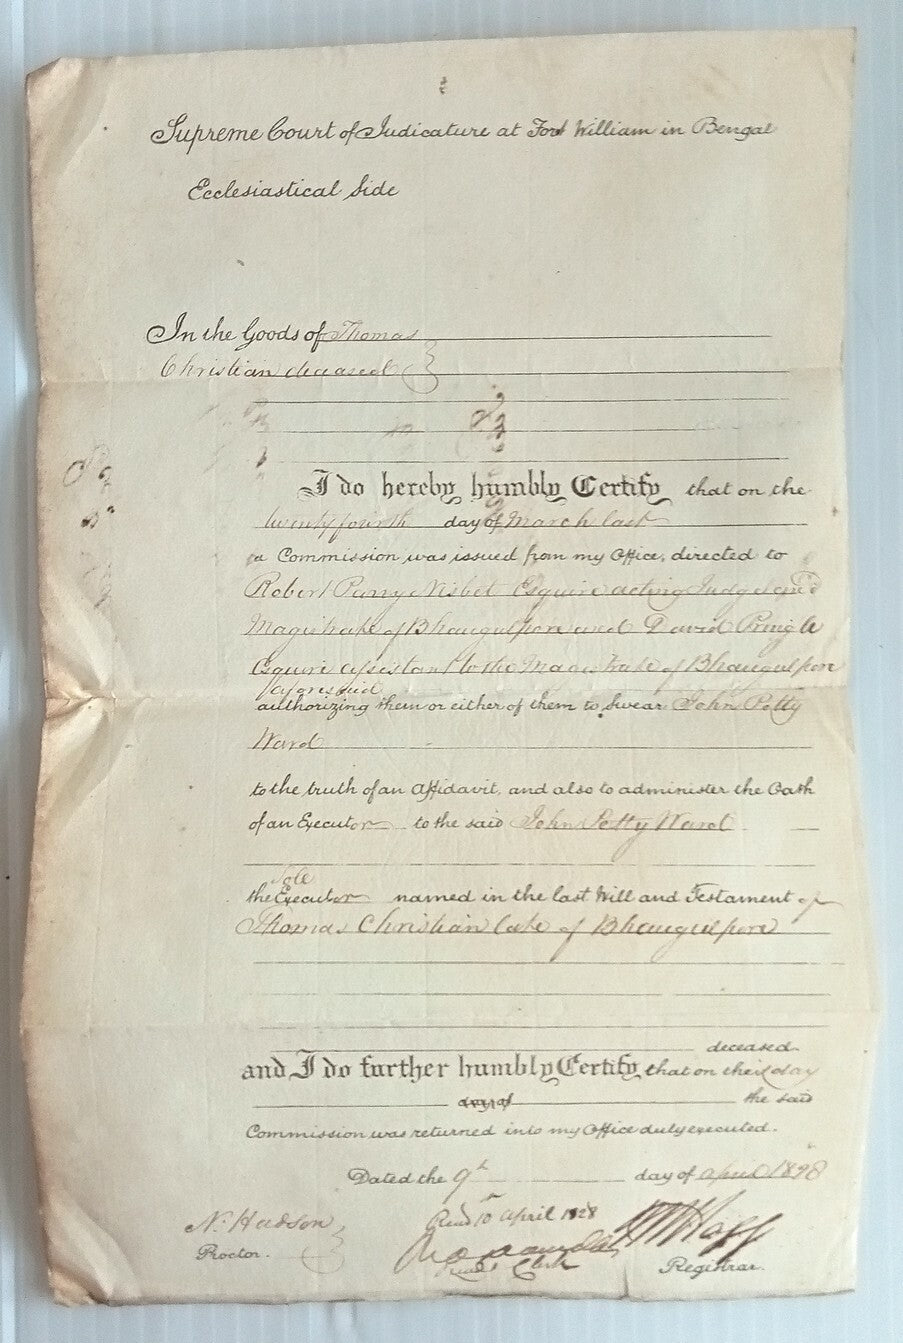 Supreme Court of Judicature at Fort William in Bengal
Ecclesiastical Side
In the Goods of Thomas
Christian deceased
I do hereby humbly Certify that on the
twenty fourth day of March last
a Commission was issued from my Office, directed to
Robert Parry Nisbet Esquire acting Judge and
Magistrate of Bhaugulpore and David Pringle
Esquire assistant to the Magistrate of Bhaugulpore
aforesaid
authorizing them or either of them to Swear John Petty
Ward
to the truth of an Affidavit, and also to administer the Oath
of an Executor to the said John Petty Ward
Sole
the Executor named in the last Will and Testament of
Thomas Christian late of Bhaugulpore
deceased
and I do further humbly Certify that on this day
day of the said
Commission was returned into my Office duly executed.
Dated the 9th day of April 1828
N. Hudson
Proctor.
10 April 1828
Clerk
Registrar.